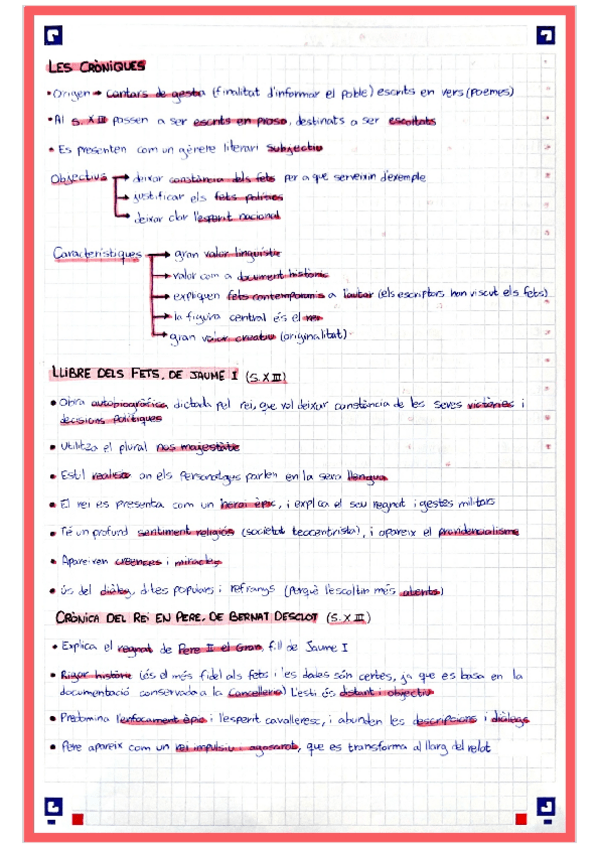 LES CRÒNIQUES
• Origen → cantars de gesta (finalitat d'informar el poble) escrits en vers (poemes)
• Al s. XIII passen a ser escrits en prosa, destinats a ser escoltats
• Es presenten com un gènere literari subjectiu
Objectius → deixar constància dels fets per a que serveixin d'exemple
→ justificar els fets polítics
→ deixar clar l'esperit nacional
Característiques → gran valor lingüístic
→ valor com a document històric
→ expliquen fets contemporanis a l'autor (els escriptors han viscut els fets)
→ la figura central és el rei
→ gran valor creatiu (originalitat)
LLIBRE DELS FETS, DE JAUME I (S. XIII)
• Obra autobiogràfica, dictada pel rei, que vol deixar constància de les seves victòries i
decisions polítiques
• Utilitza el plural nos majestàtic
• Estil realista on els personatges parlen en la seva llengua
• El rei es presenta com un heroi èpic, i explica el seu regnat i gestes militars
• Té un profund sentiment religiós (societat teocentrista), i apareix el providencialisme
• Apareixen creences i miracles
• Ús del diàleg, dites populars i refranys (perquè l'escoltin més atents)
CRÒNICA DEL REI EN PERE, DE BERNAT DESCLOT (S. XIII)
• Explica el regnat de Pere II el Gran, fill de Jaume I
• Rigor històric (és el més fidel als fets i les dades són certes, ja que es basa en la
documentació conservada a la Cancelleria) L'estil és distant i objectiu
• Predomina l'enfocament èpic i l'esperit cavalleresc, i abunden les descripcions i diàlegs
• Pere apareix com un rei impulsiu i agosarat, que es transforma al llarg del relat